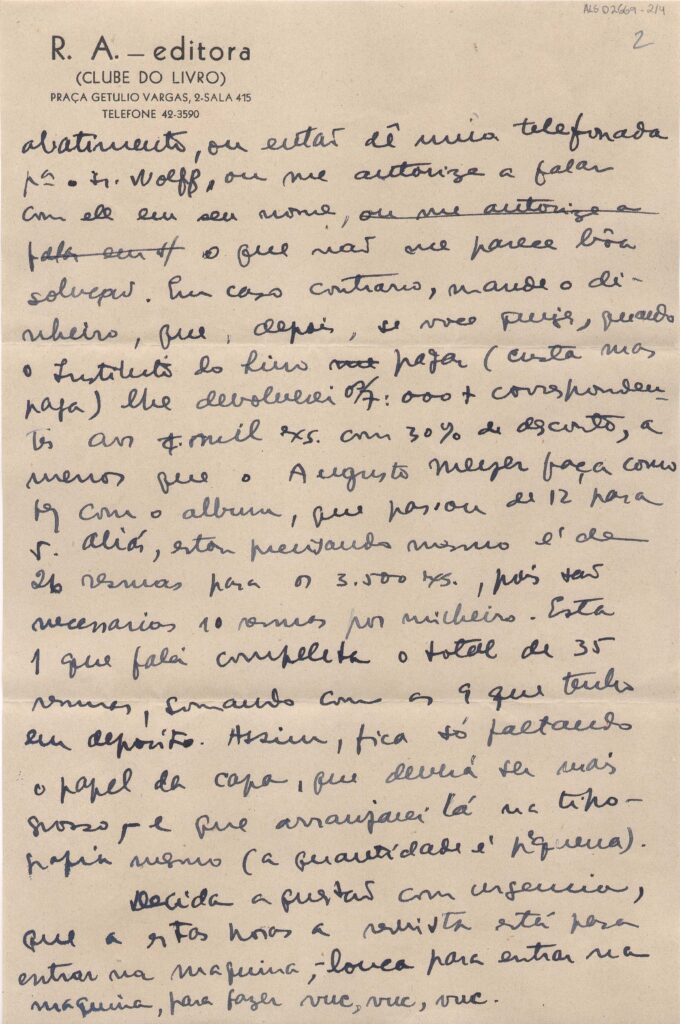 ALG 02669 - 2/4
2
R. A. — editora
(CLUBE DO LIVRO)
PRAÇA GETULIO VARGAS, 2-SALA 415
TELEFONE 42-3590
abatimento, ou entaõ dê uma telefonada
pª o Sr. Wolff, ou me autorize a falar
com ele em seu nome, ou me autorize a
falar em o que naõ me parece bôa
soluçaõ. Em caso contrario, mande o di-
nheiro, que, depois, se voce quizer, quando
o Instituto do Livro me pagar (custa mas
paga) lhe devolverei :000 + corresponden-
tes aos mil exs. com 30% de desconto, a
menos que o Augusto Meyer faça como
fez com o album, que passou de 12 para
5. Aliás, estou precisando mesmo é de
26 resmas para os 3.500 exs., pois saõ
necessarias 10 resmas por milheiro. Esta
1 que falá completa o total de 35
resmas, somando com as 9 que tenho
em deposito. Assim, fica só faltando
o papel da capa, que deverá ser mais
grosso, – e que arranjarei lá na tipo-
grafia mesmo (a quantidade é pequena).
Decida a questaõ com urgencia,
que a estas horas a revista está para
entrar na maquina, – louca para entrar na
maquina, para fazer vuc, vuc, vuc.